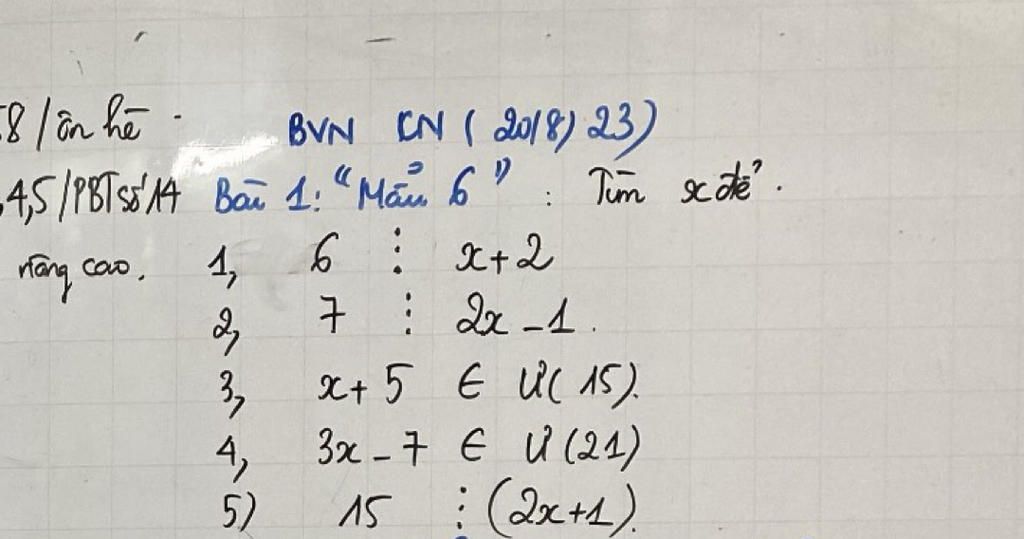 8 / ôn hè.
BVN CN ( 20/8/23)
4,5/PBT số 14 Bài 1: "Mẫu 6" : Tìm x để.
nâng cao. 1, 6 ⋮ x+2
2, 7 ⋮ 2x - 1.
3, x+ 5 ∈ Ư( 15).
4, 3x - 7 ∈ Ư (21)
5) 15 ⋮ (2x+1).